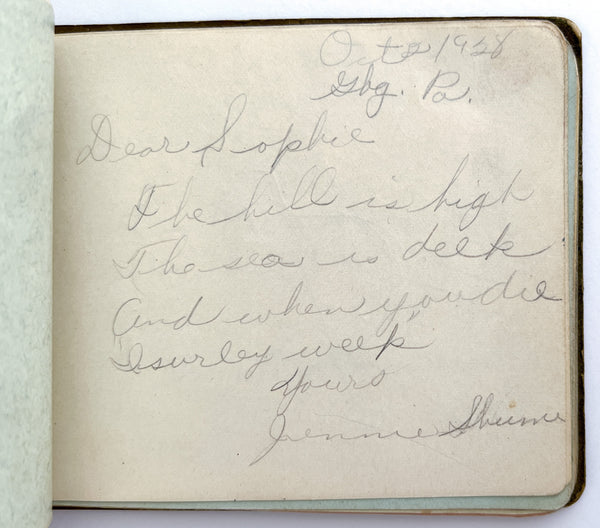 Oct 2 1928
Gbg. Pa.
Dear Sophie
The hill is high
The sea is deek
And when you die
"I surley week"
Yours
Jennie